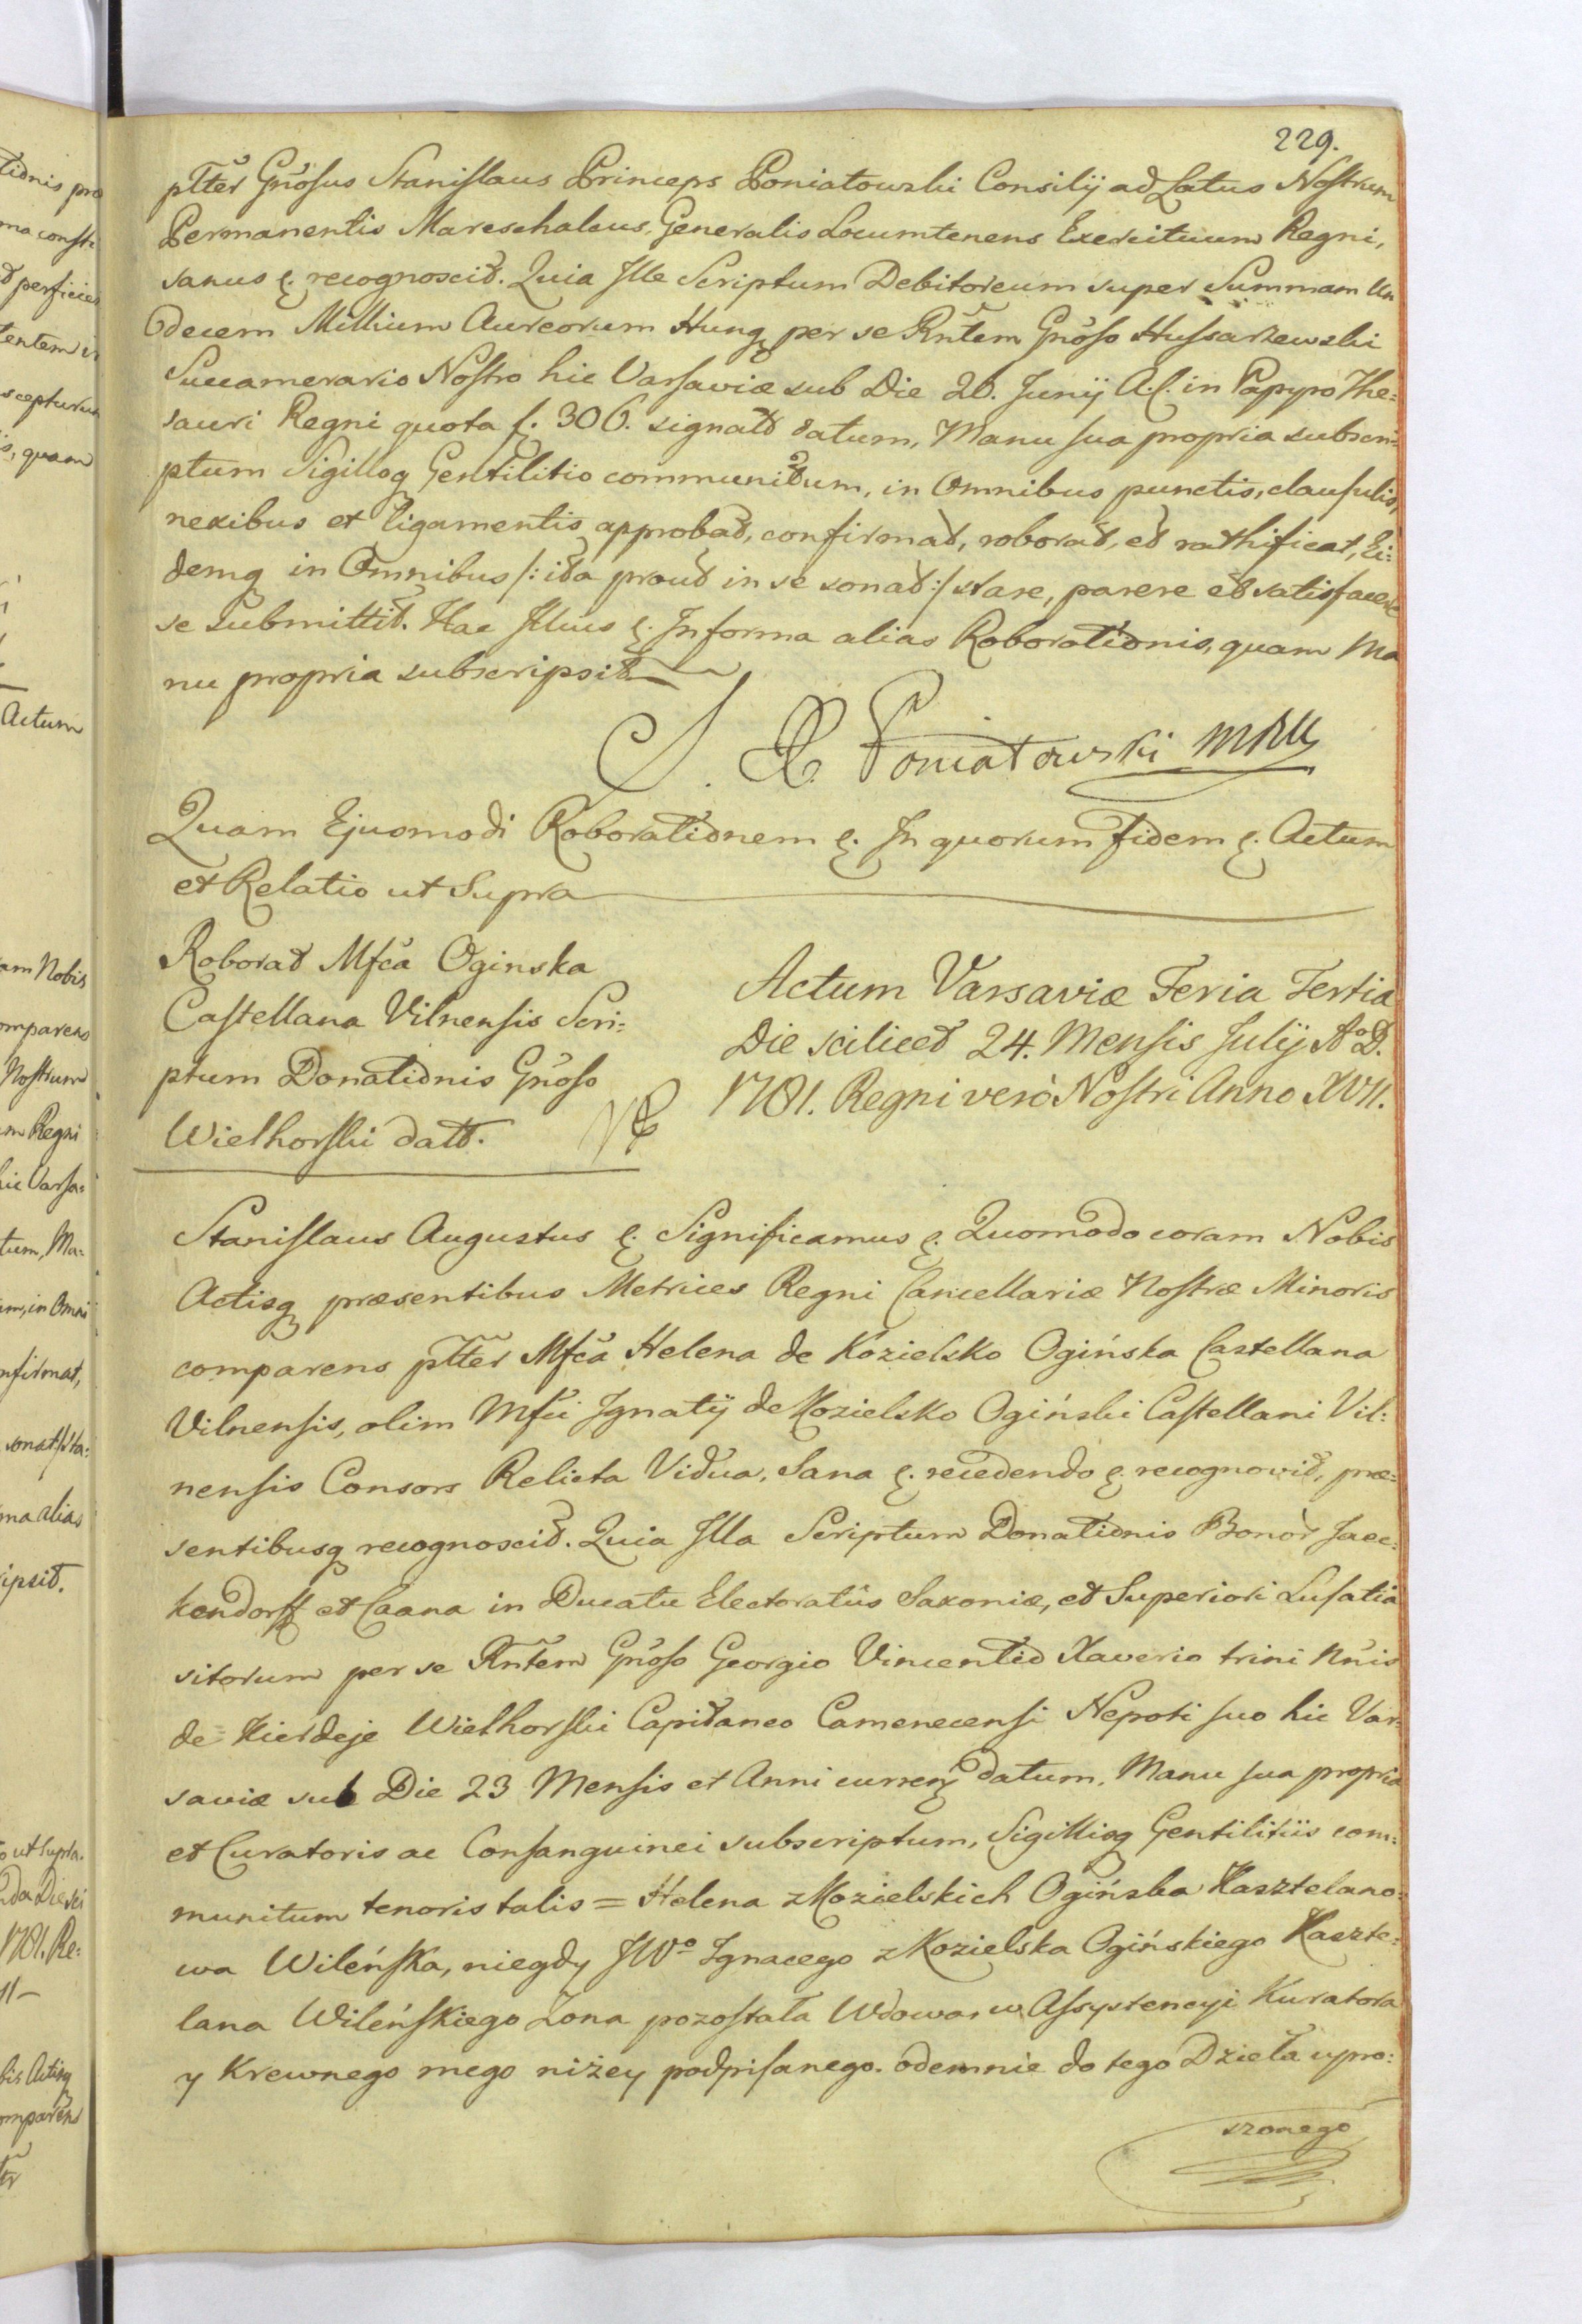 229.
pltter Gnosus Stanislaus Princeps Poniatowski Consilij ad Latus Nostrum
Permanentis Mareschalcus, Generalis Locumtenens Exercituum Regni,
sanus &. recognoscit. Quia Ille Scriptum Debitoreum super Summam Un
decem Millium Aureorum Hungq per se Rntem Gnoso Hussarzewski
Succamerario Nostro hic Varsaviæ sub Die 20. Junij A.C. in Papyro The:
sauri Regni quota f. 306. signatô datum, Manu sua propria subscri:
ptum Sigilloq Gentilitio communitum, in Omnibus punctis, clausulis,
nexibus et ligamentis approbat, confirmat, roborat, et rathificat, Ei:
demq in Omnibus /: ita prout in se sonat :/ stare, parere et satisfacere
se submittit. Hac Illius &. In forma alias Roborationis, quam Ma
nu propria subscripsit
S. X. Poniatowski mpp
Quam Ejusmodi Roborationem &. In quorum fidem &. Actum
et Relatio ut Supra
Roborat Mfca Oginska
Castellana Vilnensis Scri:
ptum Donationis Gnoso
Wielhorski datt.
Actum Varsaviæ Feria Tertia
Die scilicet 24. Mensis Julij Aº D.
1781. Regni verò Nostri Anno XVII.
Stanislaus Augustus &. Significamus &. Quomodo coram Nobis
Actisq præsentibus Metrices Regni Cancellariæ Nostræ Minoris
comparens pltter Mfca Helena de Kozielsko Ogińska Castellana
Vilnensis, olim Mfci Ignatij de Kozielsko Ogiński Castellani Vil:
nensis Consors Relicta Vidua, Sana &. recedendo &. recognovit, præ:
sentibusq recognoscit. Quia Illa Scriptum Donationis Bonor Jaec:
kendorff et Caana in Ducatu Electoratûs Saxoniæ, et Superiori Lusatia
sitorum per se Rntem Gnoso Georgio Vincentio Xaverio trini Nnis
de Kierdeje Wielhorski Capitaneo Camenecensi Nepoti suo hic Var:
saviæ sub Die 23 Mensis et Anni curren datum, Manu sua propria
et Curatoris ac Consanguinei subscriptum, Sigillisq Gentilitiis com:
munitum tenoris talis = Helena z Kozielskich Ogińska Kasztelano:
wa Wileńska, niegdy JWº Ignacego z Kozielska Ogińskiego Kaszte:
lana Wileńskiego Żona pozostała Wdowa, w Assystencyi Kuratora
y Krewnego mego niżey podpisanego. odemnie do tego Dzieła upro:
szonego